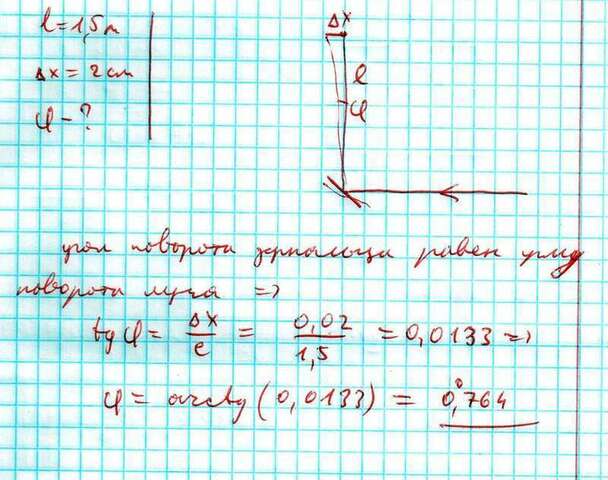 l = 1,5 m
Δx = 2 cm
φ - ?
Δx
l
φ
угол поворота зеркальца равен углу
поворота луча =>
tg φ = Δx / l = 0,02 / 1,5 = 0,0133 =>
φ = arctg (0,0133) = 0,°764